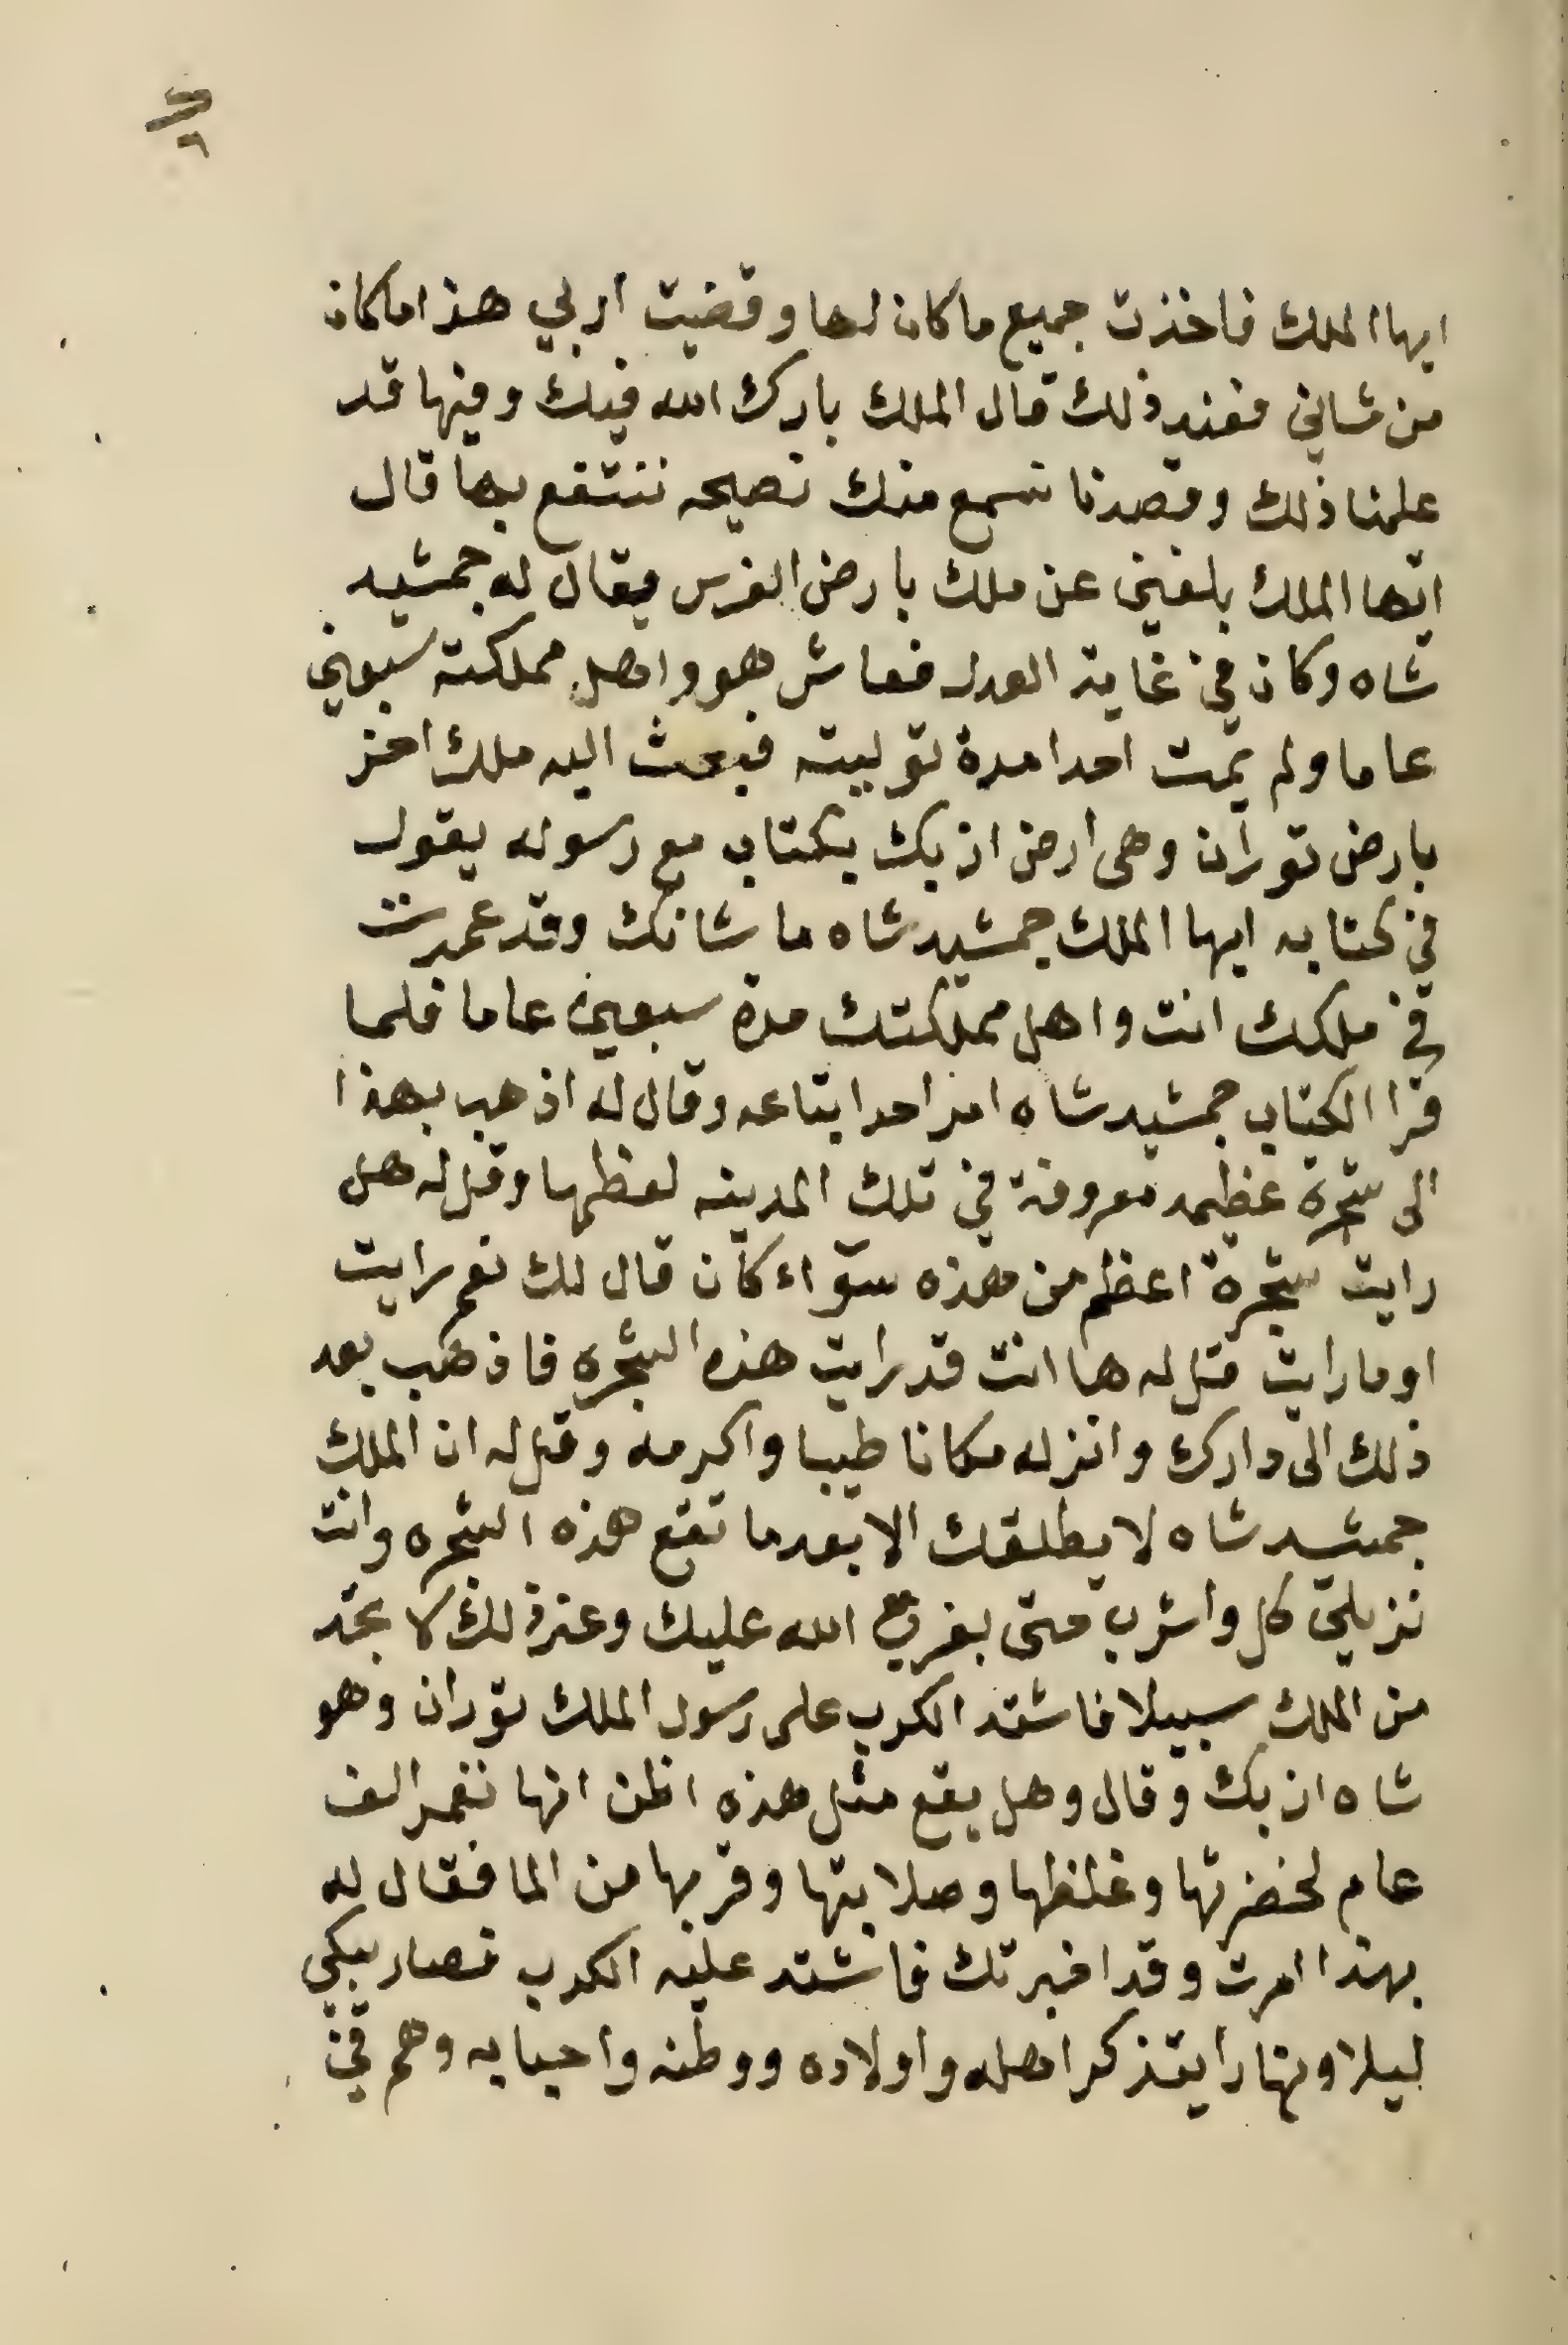 ايها الملك فاخذت جميع ما كان لها وقضيت اربي هذا ما كان
من شاني فعند ذلك قال الملك بارك الله فيك وفيها قد
علمنا ذلك وقصدنا نسمع منك نصيحه ننتفع بها قال
ايها الملك بلغني عن ملك بارض الفرس يقال له جمشيد
شاه وكان في غاية العدل فعاش هو واهل مملكته سبعين
عاما ولم يمت احدا مدة توليته فبعث اليه ملك اخر
بارض توران وهى ارض ازبك بكتاب مع رسوله يقول
في كتابه ايها الملك جمشيد شاه ما شانك وقد عمرت
في ملكك انت واهل مملكتك مدة سبعين عاما فلما
قرا الكتاب جمشيد شاه امر احدا بتاعه وقال له اذهب بهذا
الى شجرة عظيمه معروفة في تلك المدينه لعظمها وقل له هل
رايت شجرة اعظم من هذه سوٓاء كان قال لك نعم رايت
او ما رايت قل له ها انت قد رايت هذه الشجره فاذهب بعد
ذلك الى دارك وانزله مكانا طيبا واكرمه وقل له ان الملك
جمشيد شاه لا يطلقك الا بعد ما تقع هذه الشجره وانت
نزيلي كل واشرب حتى يفرج الله عليك وغير ذلك لا تجد
من الملك سبيلا فاشتد الكرب على رسول الملك توران وهو
شاه ازبك وقال وهل يقع مثل هذه اظن انها تعمر الف
عام لخضرتها وغلظها وصلابتها وقربها من الما فقال له
بهذا امرت وقد اخبرتك فاشتد عليه الكرب فصار يبكي
ليلا ونهارا يتذكر اهله واولاده ووطنه واحبابه وهم في